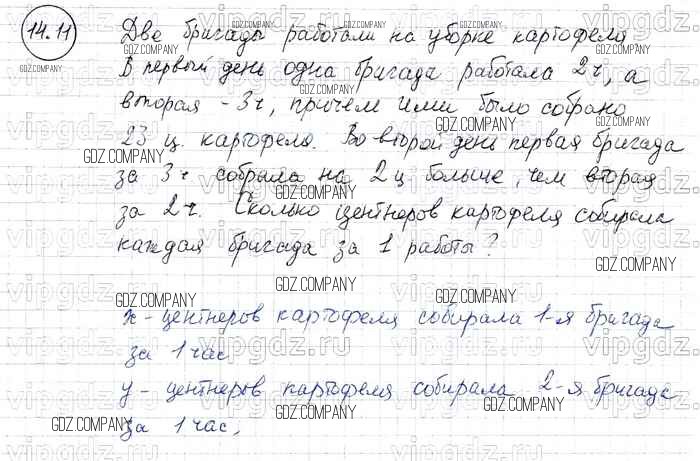 14.11 Две бригады работали на уборке картофеля
В первый день одна бригада работала 2ч, а
вторая - 3ч, причем ими было собрано
23 ц. картофеля. Во второй день первая бригада
за 3ч собрала на 2ц больше, чем вторая
за 2ч. Сколько центнеров картофеля собирала
каждая бригада за 1 работы?
x - центнеров картофеля собирала 1-я бригада
за 1 час
y - центнеров картофеля собирала 2-я бригада
за 1 час,
GDZ.COMPANY
vipgdz.ru